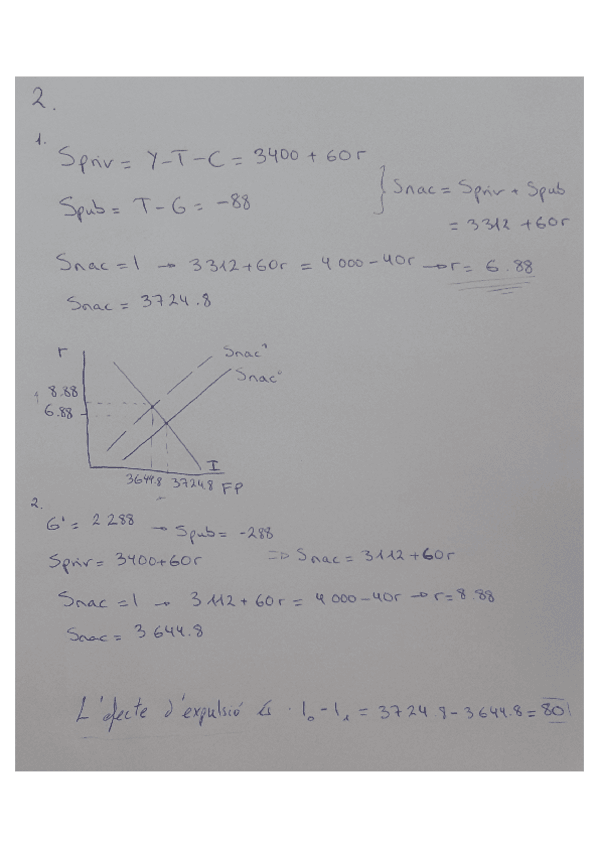 2.
1.
Spriv = Y-T-C = 3400 + 60r
Spub = T-G = -88
} Snac = Spriv + Spub
= 3312 + 60r
Snac = I → 3312+60r = 4000-40r → r = 6.88
Snac = 3724.8
r
Snac¹
Snac⁰
8.88
6.88
I
3644.8 3724.8 FP
2.
G' = 2288 → Spub = -288
Spriv = 3400+60r ⇒ Snac = 3112+60r
Snac = I → 3112+60r = 4000-40r → r=8.88
Snac = 3644.8
L'efecte d'expulsió és I₀-I₁ = 3724.8-3644.8 = 80